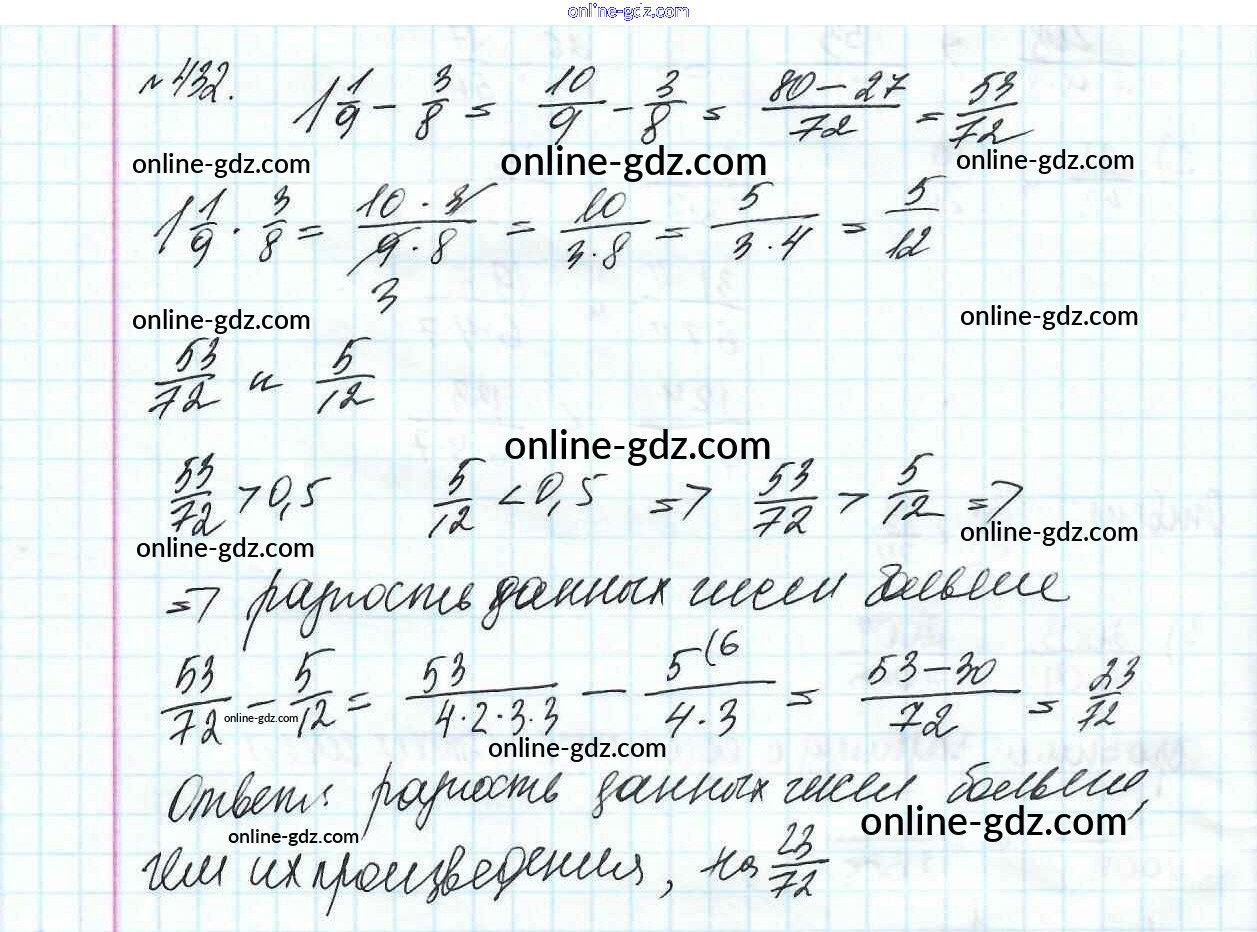 online-gdz.com
№432. 1 1/9 - 3/8 = 10/9 - 3/8 = (80-27)/72 = 53/72
online-gdz.com online-gdz.com online-gdz.com
1 1/9 · 3/8 = (10·3)/(9·8) = 10/(3·8) = 5/(3·4) = 5/12
3
online-gdz.com online-gdz.com
53/72 и 5/12
online-gdz.com
53/72 > 0,5 5/12 < 0,5 => 53/72 > 5/12 =>
online-gdz.com online-gdz.com
=> разность данных чисел больше
53/72 - 5/12 = 53/(4·2·3·3) - 5(6/(4·3) = (53-30)/72 = 23/72
online-gdz.com
online-gdz.com
Ответ: разность данных чисел больше,
online-gdz.com online-gdz.com
чем их произведения, на 23/72